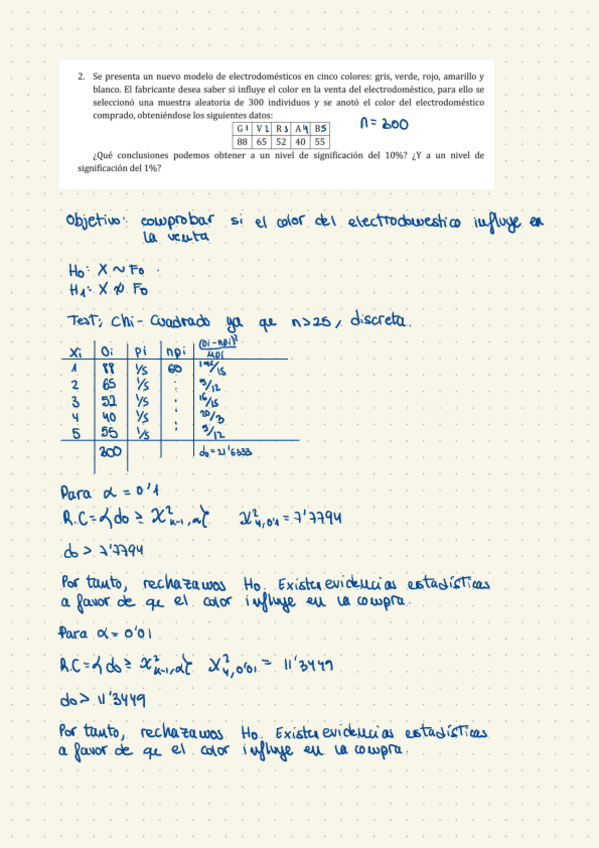 2. Se presenta un nuevo modelo de electrodomésticos en cinco colores: gris, verde, rojo, amarillo y
blanco. El fabricante desea saber si influye el color en la venta del electrodoméstico, para ello se
seleccionó una muestra aleatoria de 300 individuos y se anotó el color del electrodoméstico
comprado, obteniéndose los siguientes datos:
G 1 V 2 R 3 A 4 B 5 n = 300
88 65 52 40 55
¿Qué conclusiones podemos obtener a un nivel de significación del 10%? ¿Y a un nivel de
significación del 1%?
Objetivo: comprobar si el color del electrodomestico influye en
la venta
H0: X ~ F0
H1: X ≁ F0
Test: Chi-Cuadrado ya que n>25, discreta.
xi Oi pi npi (Oi-npi)²/npi
1 88 1/5 60 196/15
2 65 1/5 : 5/12
3 52 1/5 : 16/15
4 40 1/5 : 20/3
5 55 1/5 : 5/12
300 do = 21'6333
Para α = 0'1
R.C = { do ≥ X²k-1,α } X²4,0'1 = 7'7794
do > 7'7794
Por tanto, rechazamos H0. Existen evidencias estadísticas
a favor de que el color influye en la compra.
Para α = 0'01
R.C = { do ≥ X²k-1,α } X²4,0'01 = 11'3449
do > 11'3449
Por tanto, rechazamos H0. Existen evidencias estadísticas
a favor de que el color influye en la compra.